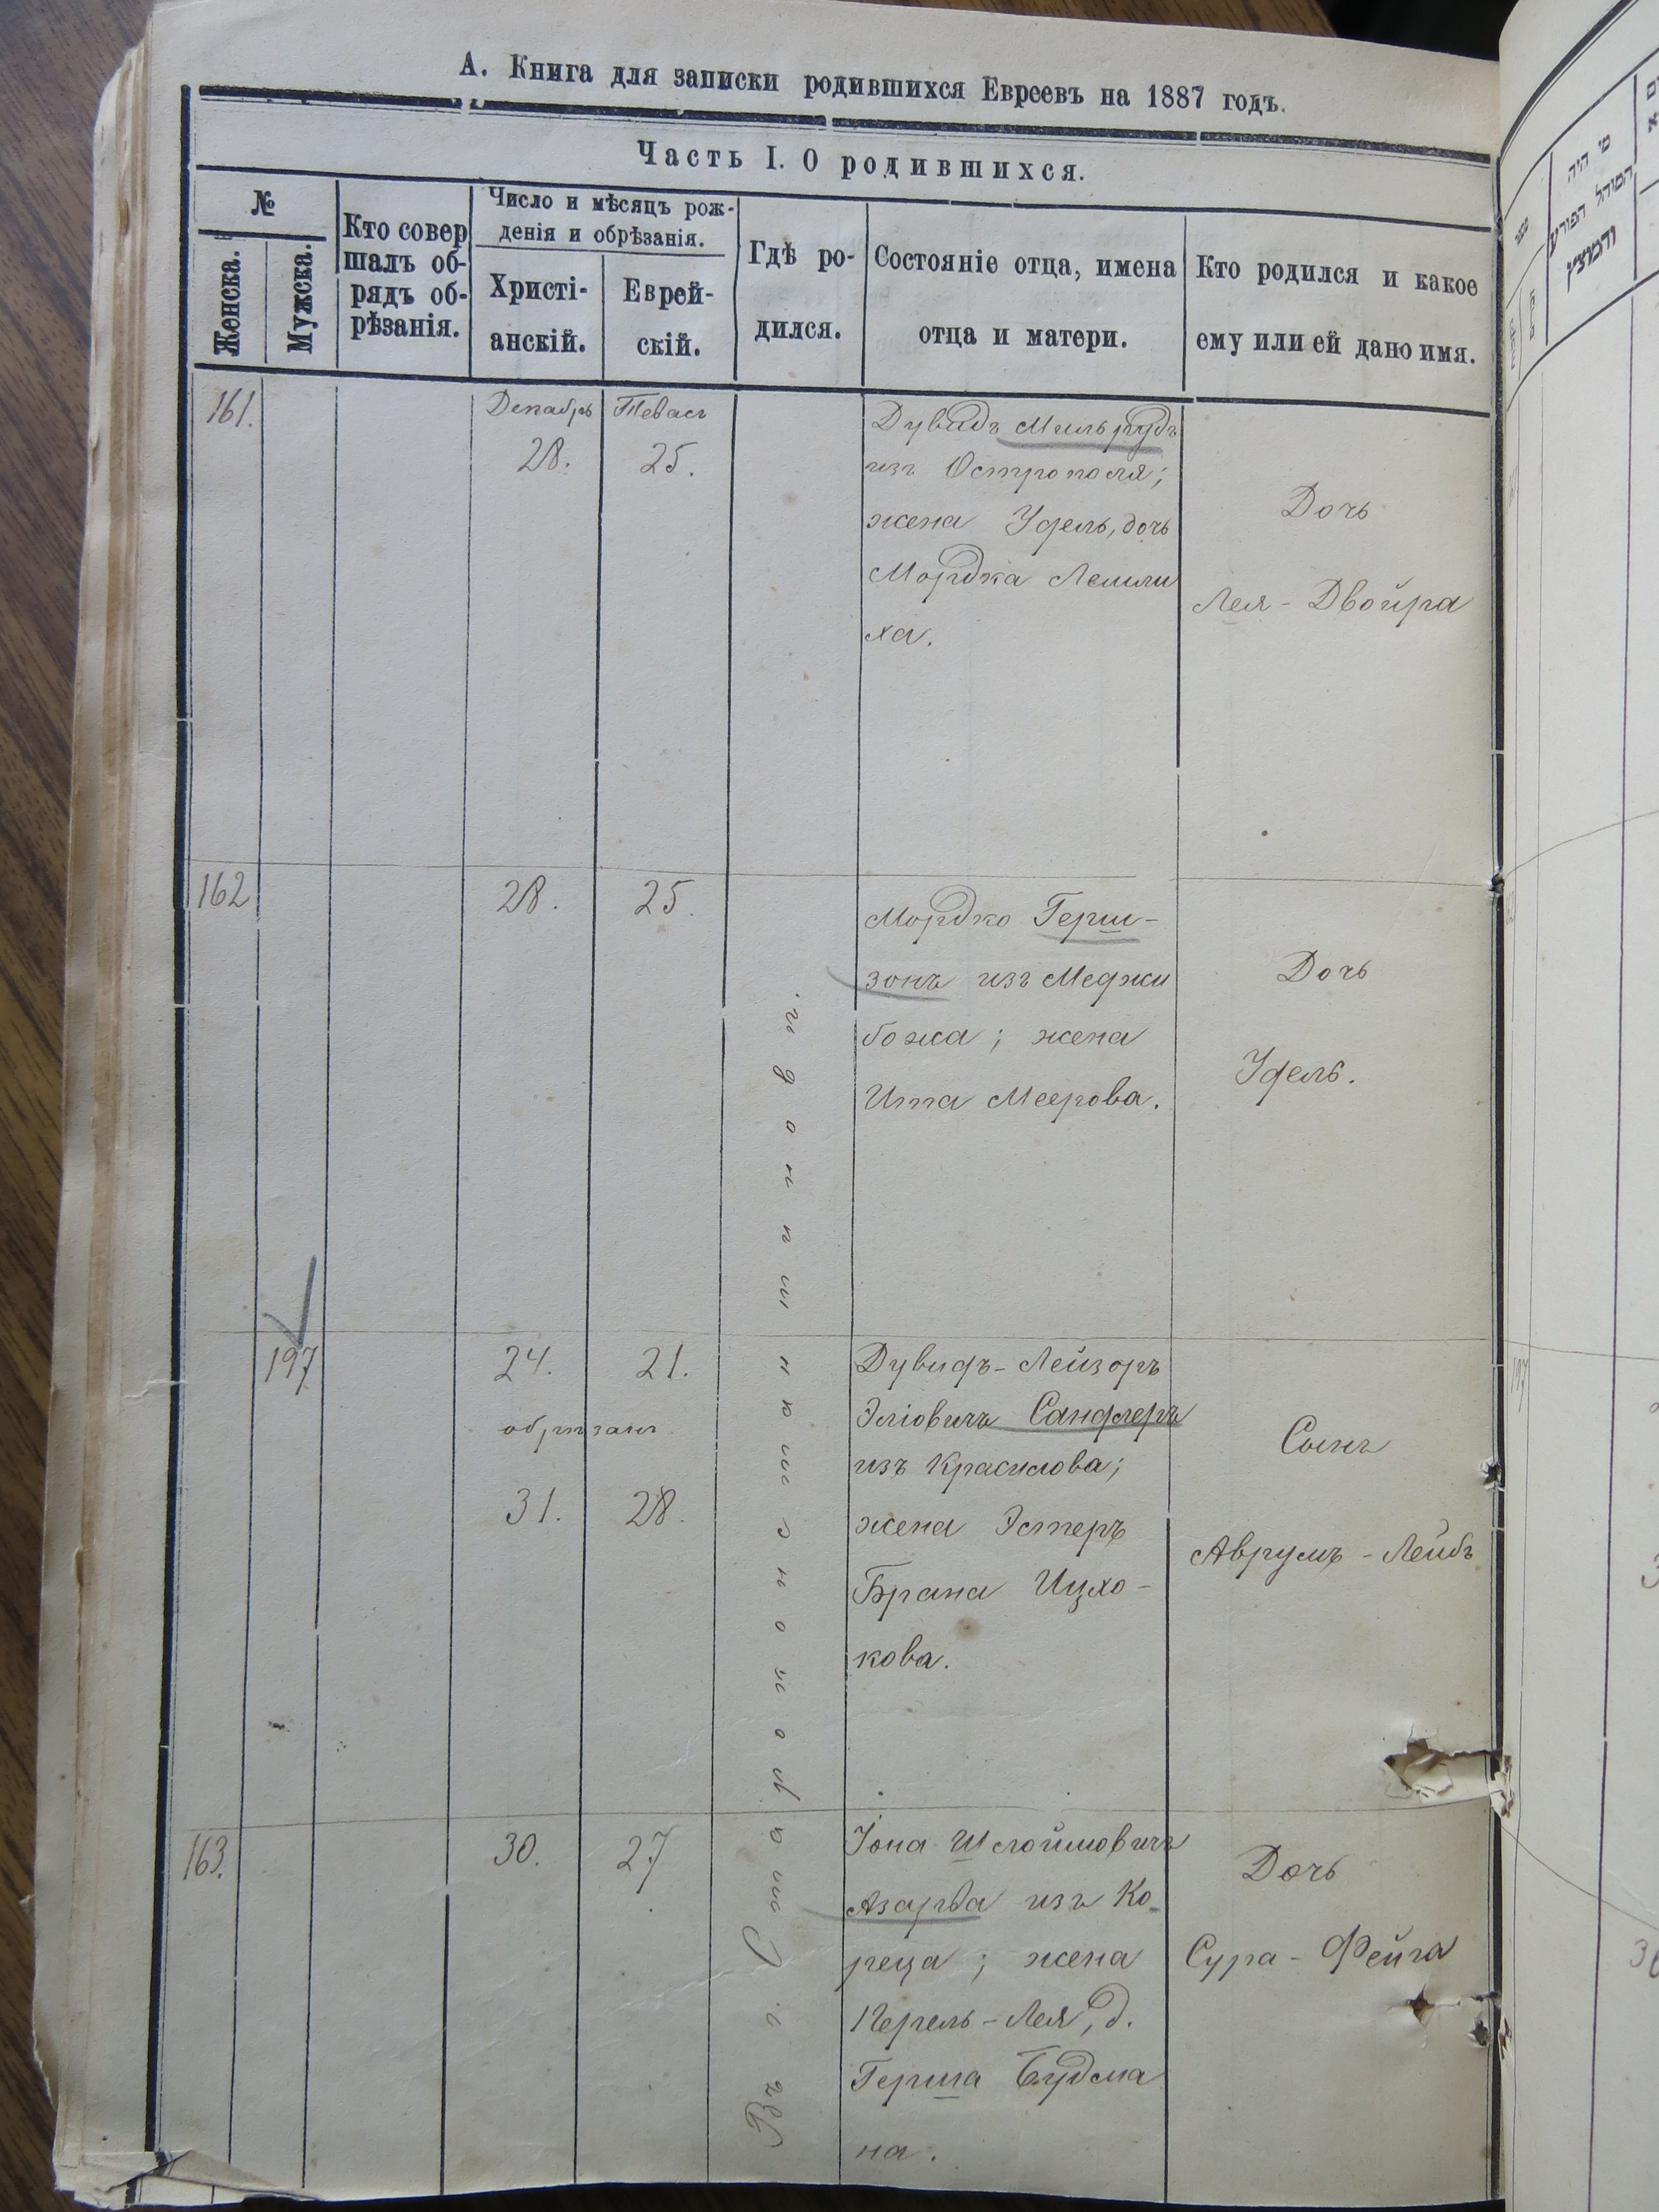 А. Книга для записки родившихся Евреевъ на 1887 годъ.
Часть I. О родившихся.
№
Женска.
Мужска.
Кто совер
шалъ об-
рядъ об-
рѣзанія.
Число и мѣсяцъ рож-
денія и обрѣзанія.
Христі-
анскій.
Еврей-
скій.
Гдѣ ро-
дился.
Состояніе отца, имена
отца и матери.
Кто родился и какое
ему или ей дано имя.
161.
Декабрь
28.
Тевасъ
25.
Дувидъ Мильрудъ
изъ Острополя;
жена Удель, дочь
Мордка Лемли
ха.
Дочь
Лея - Двойра
162
28.
25.
Мордко Герш-
зонъ изъ Меджи
божа; жена
Ита Меерова.
Дочь
Удель.
197
24.
21.
обрѣзанъ
31.
28.
Дувидъ-Лейзоръ
Эліовичъ Сандлеръ
изъ Красилова;
жена Эстеръ
Брана Ицхо-
кова.
Сынъ
Аврумъ - Лейбъ
163.
30.
27
Іона Шлоймовичъ
Азарха изъ Ко
реца; жена
Перель-Лея, д.
Герша Будма
на.
Дочь
Сура - Фейга
Въ г. Староконстантин
מי היה
המוהל הפורע
והמוצץ
197